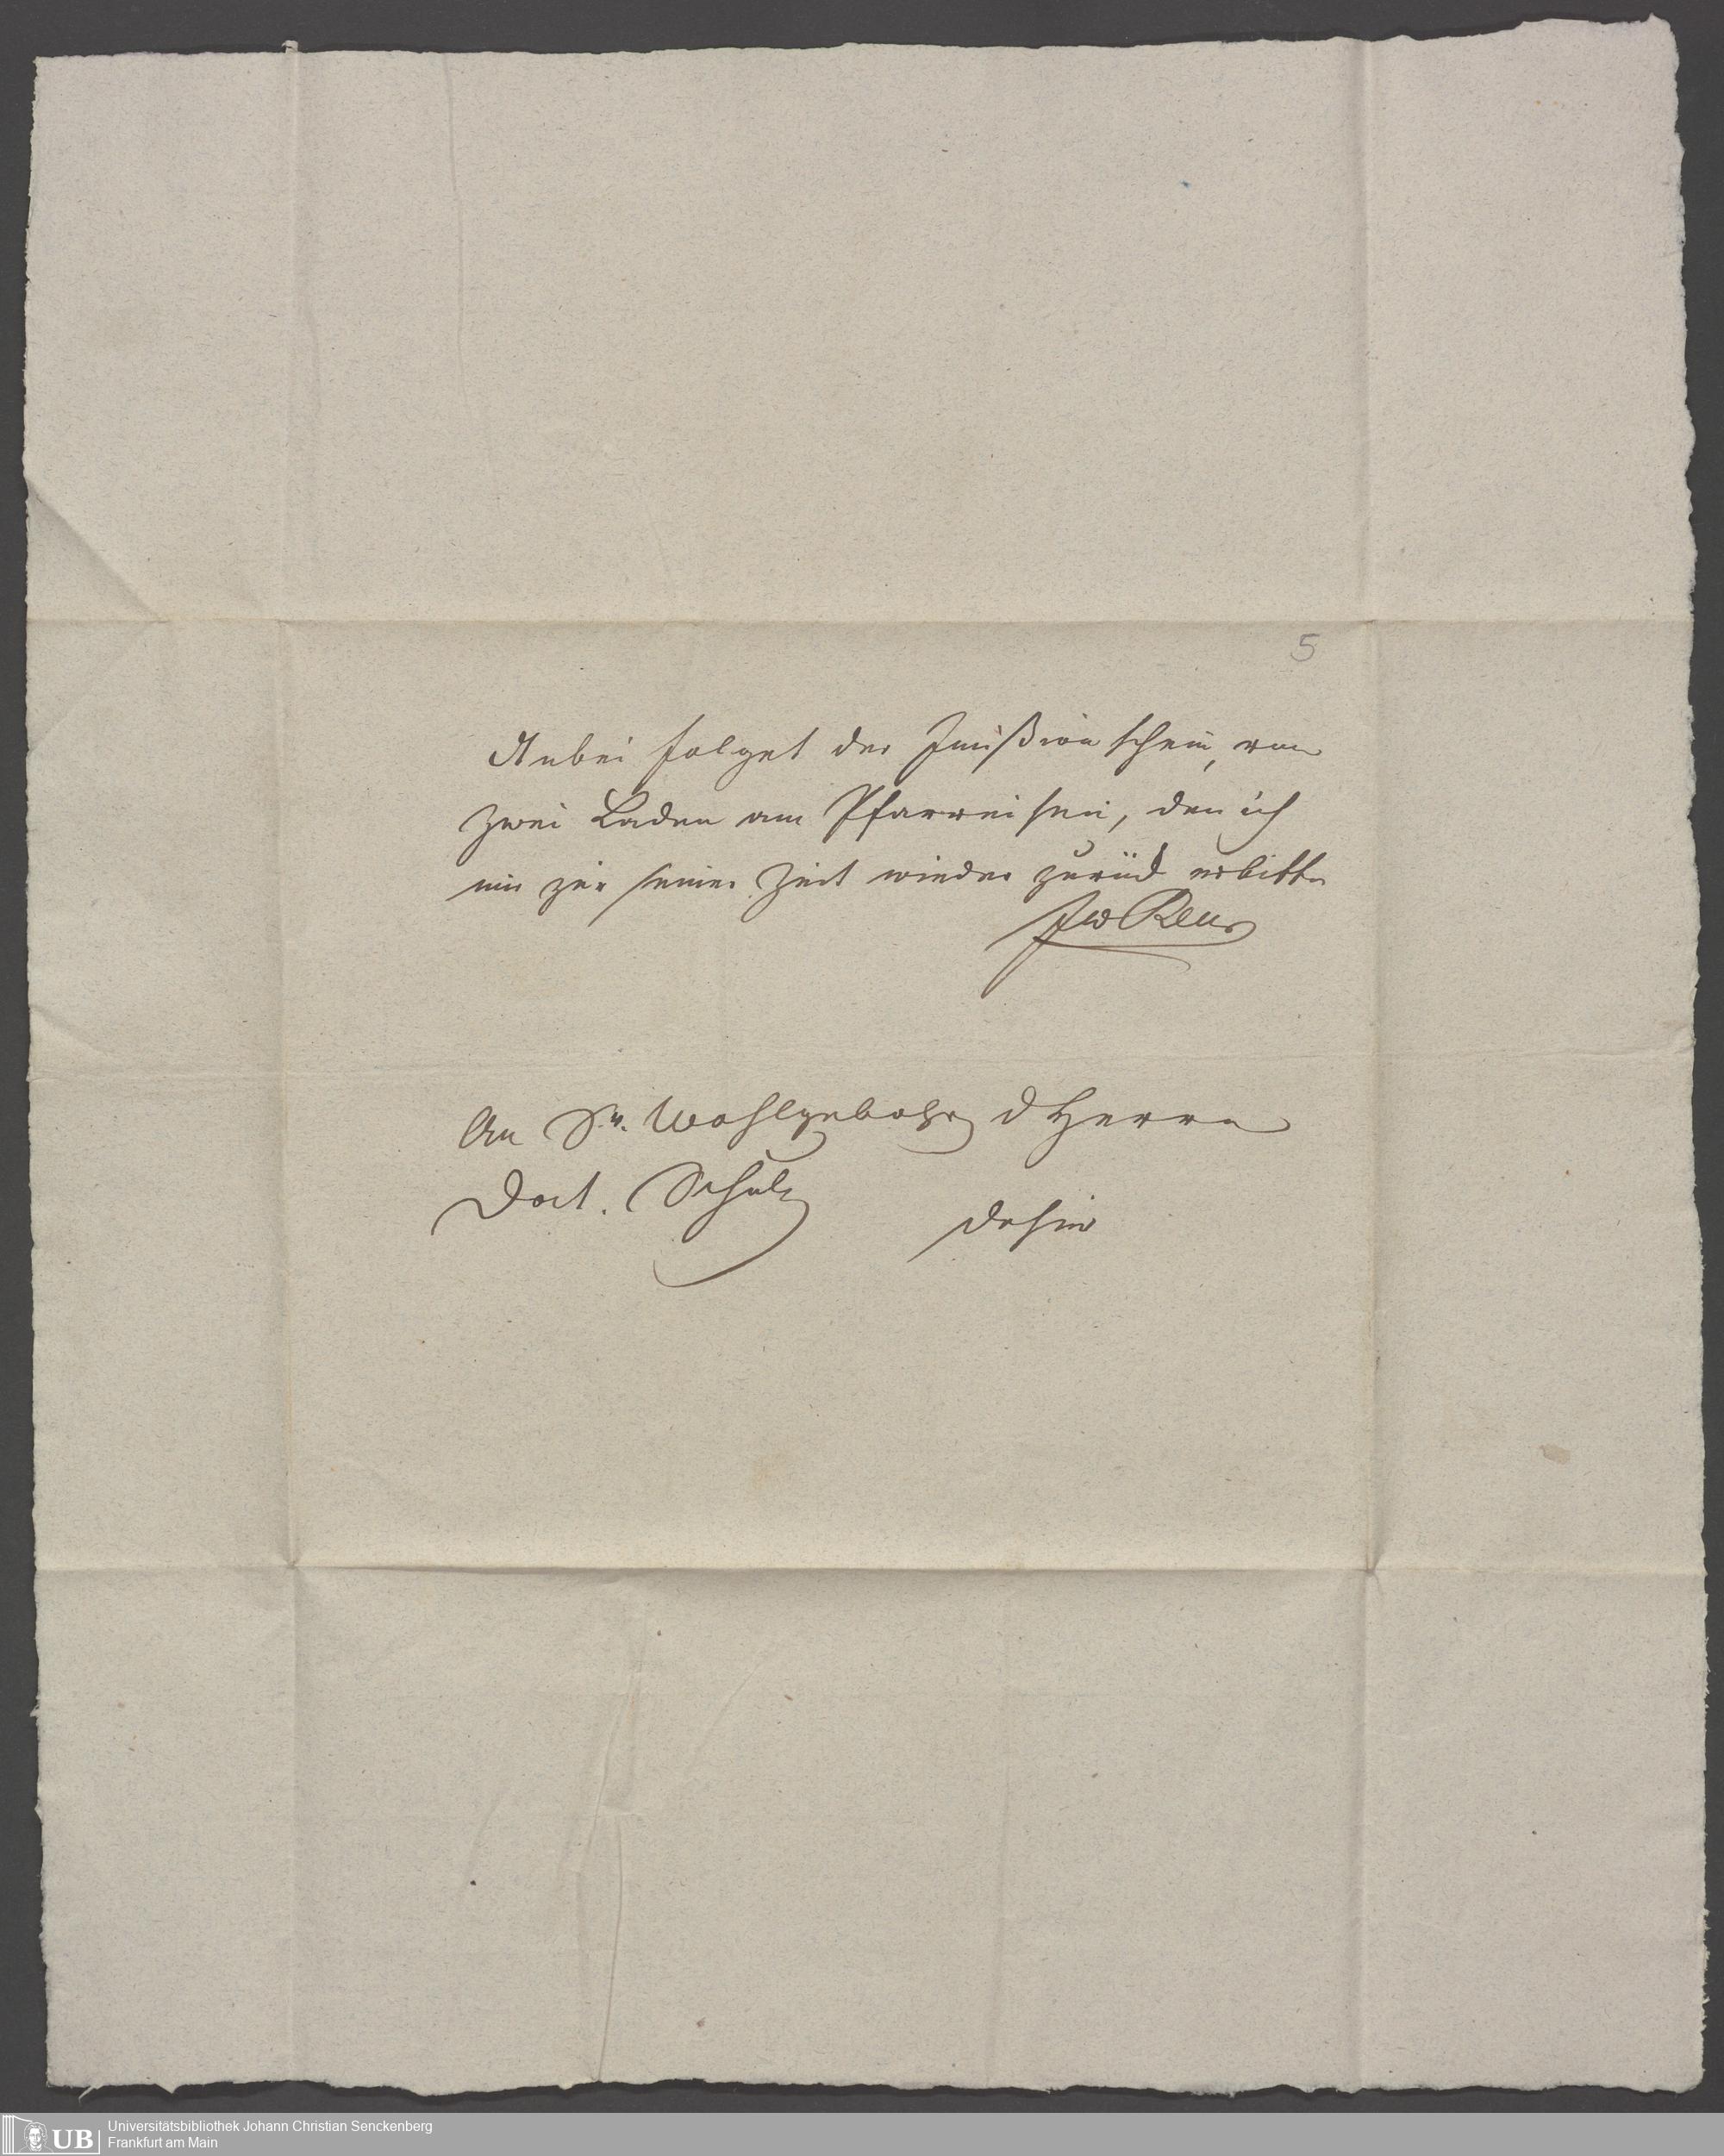 5
Anbei folget der Imißion schein, von
zwei Laden am Pfarreisen, den ich
mir zur seiner Zeit wieder zurück erbitte
An Sr. Wohlgebohrn d Herrn
Doct. Schulz
dahier
UB
Universitätsbibliothek Johann Christian Senckenberg
Frankfurt am Main